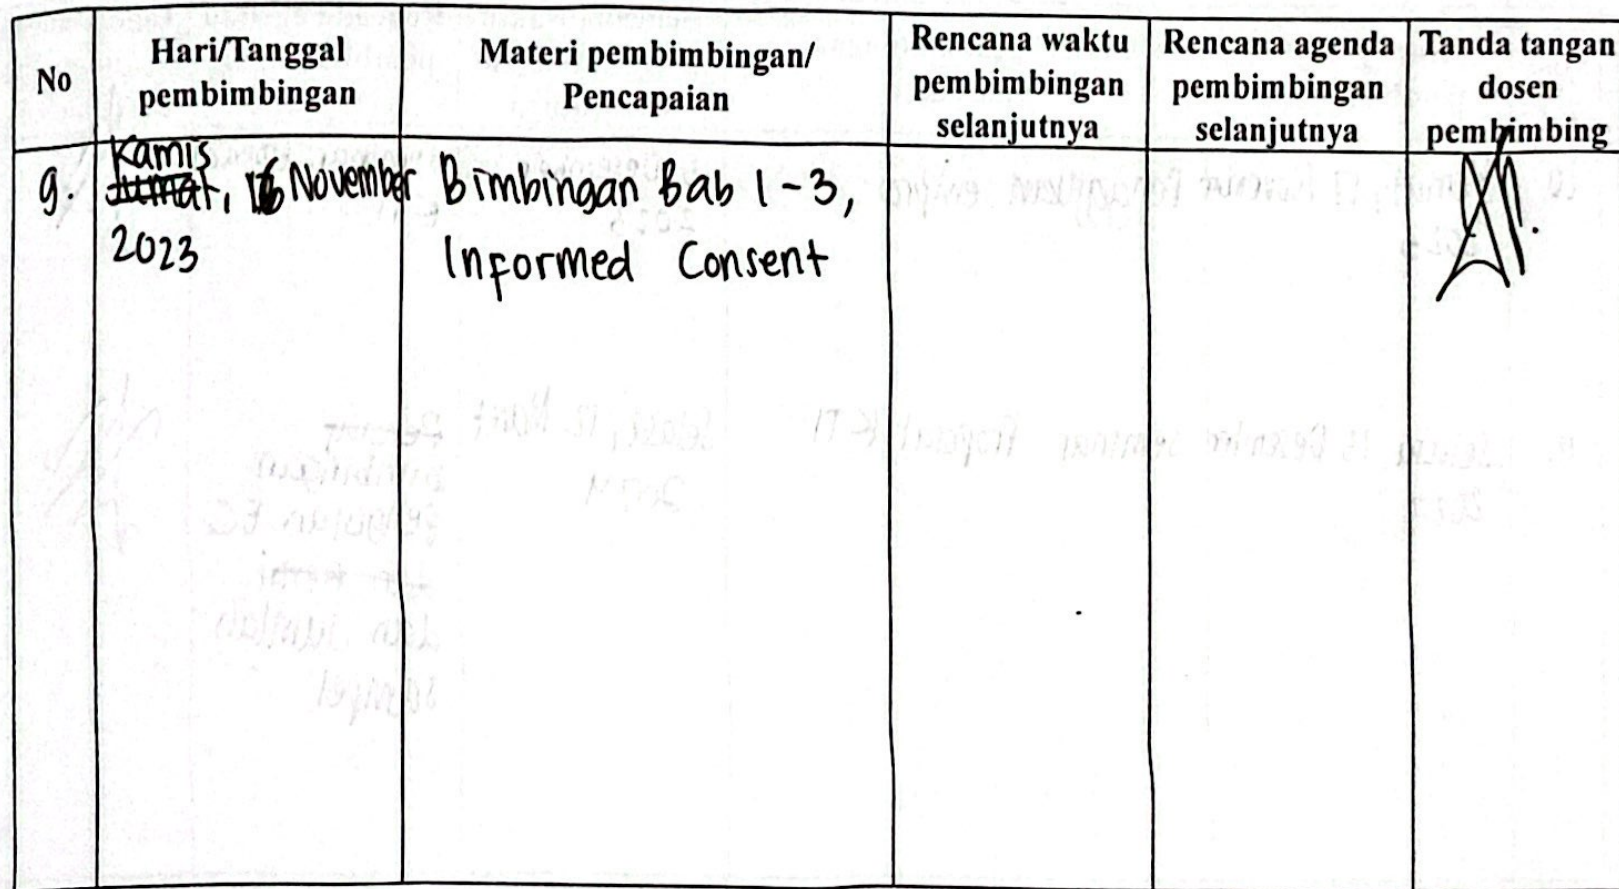 No
Hari/Tanggal
pembimbingan
Materi pembimbingan/
Pencapaian
Rencana waktu
pembimbingan
selanjutnya
Rencana agenda
pembimbingan
selanjutnya
Tanda tangan
dosen
pembimbing
9.
Kamis
Jumat, 16 November
2023
Bimbingan Bab 1-3,
Informed Consent